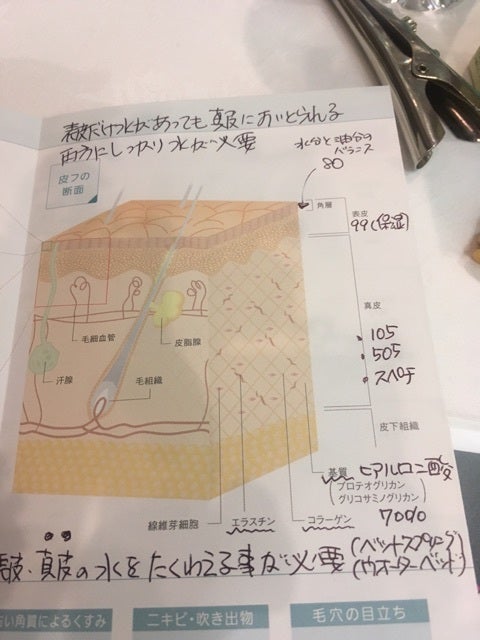 表皮だけ水があっても真皮においどられる
両方にしっかり水が必要
水分と油分の
バランス
80
皮フの
断面
角層
表皮
99(保湿)
真皮
105
505
スペロチ
毛細血管
皮脂腺
汗腺
毛組織
皮下組織
基質 ヒアルロン酸
(プロテオグリカン
グリコサミノグリカン)
70%
線維芽細胞
エラスチン
コラーゲン
(ベットスプリング)
表皮、真皮の水をたくわえる事が必要
(ウォーターベッド)
古い角質によるくすみ
ニキビ・吹き出物
毛穴の目立ち